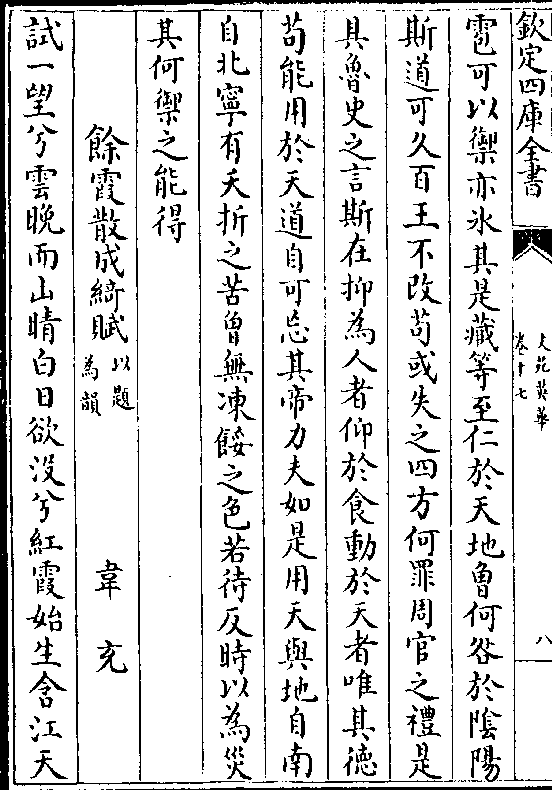 欽定四庫全書
文苑英華
卷十七
八
雹可以禦亦氷其是藏等至仁於天地曾何咎於陰陽
斯道可久百王不改苟或失之四方何罪周官之禮是
具魯史之言斯在抑為人者仰於食動於天者唯其徳
苟能用於天道自可忘其帝力夫如是用天與地自南
自北寧有夭折之苦曾無凍餒之色若待反時以為災
其何禦之能得
餘霞散成綺賦以題為韻 韋充
試一望兮雲晚而山晴白日欲没兮紅霞始生含江天